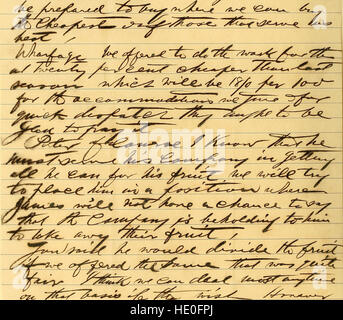 be prepared to buy where we can buy
the cheapest & of those that serve us
best,
Wharfage we offered to do the work for them
at twenty per cent cheaper than last
season which will be 18/0 per 100
for the accommodations we give & for
quick dispatch they ought to be
glad to pay it
Peter of course I know that he
must serve his Company in getting
all he can for his fruit, we will try
to place him in a position where
James will not have a chance to say
that the Company is beholding to him
to take away their fruit,
You said he would divide the fruit
if we offered the same that was quite
fair I think we can deal most anytime
on that basis However
alamy
HE0FPJ